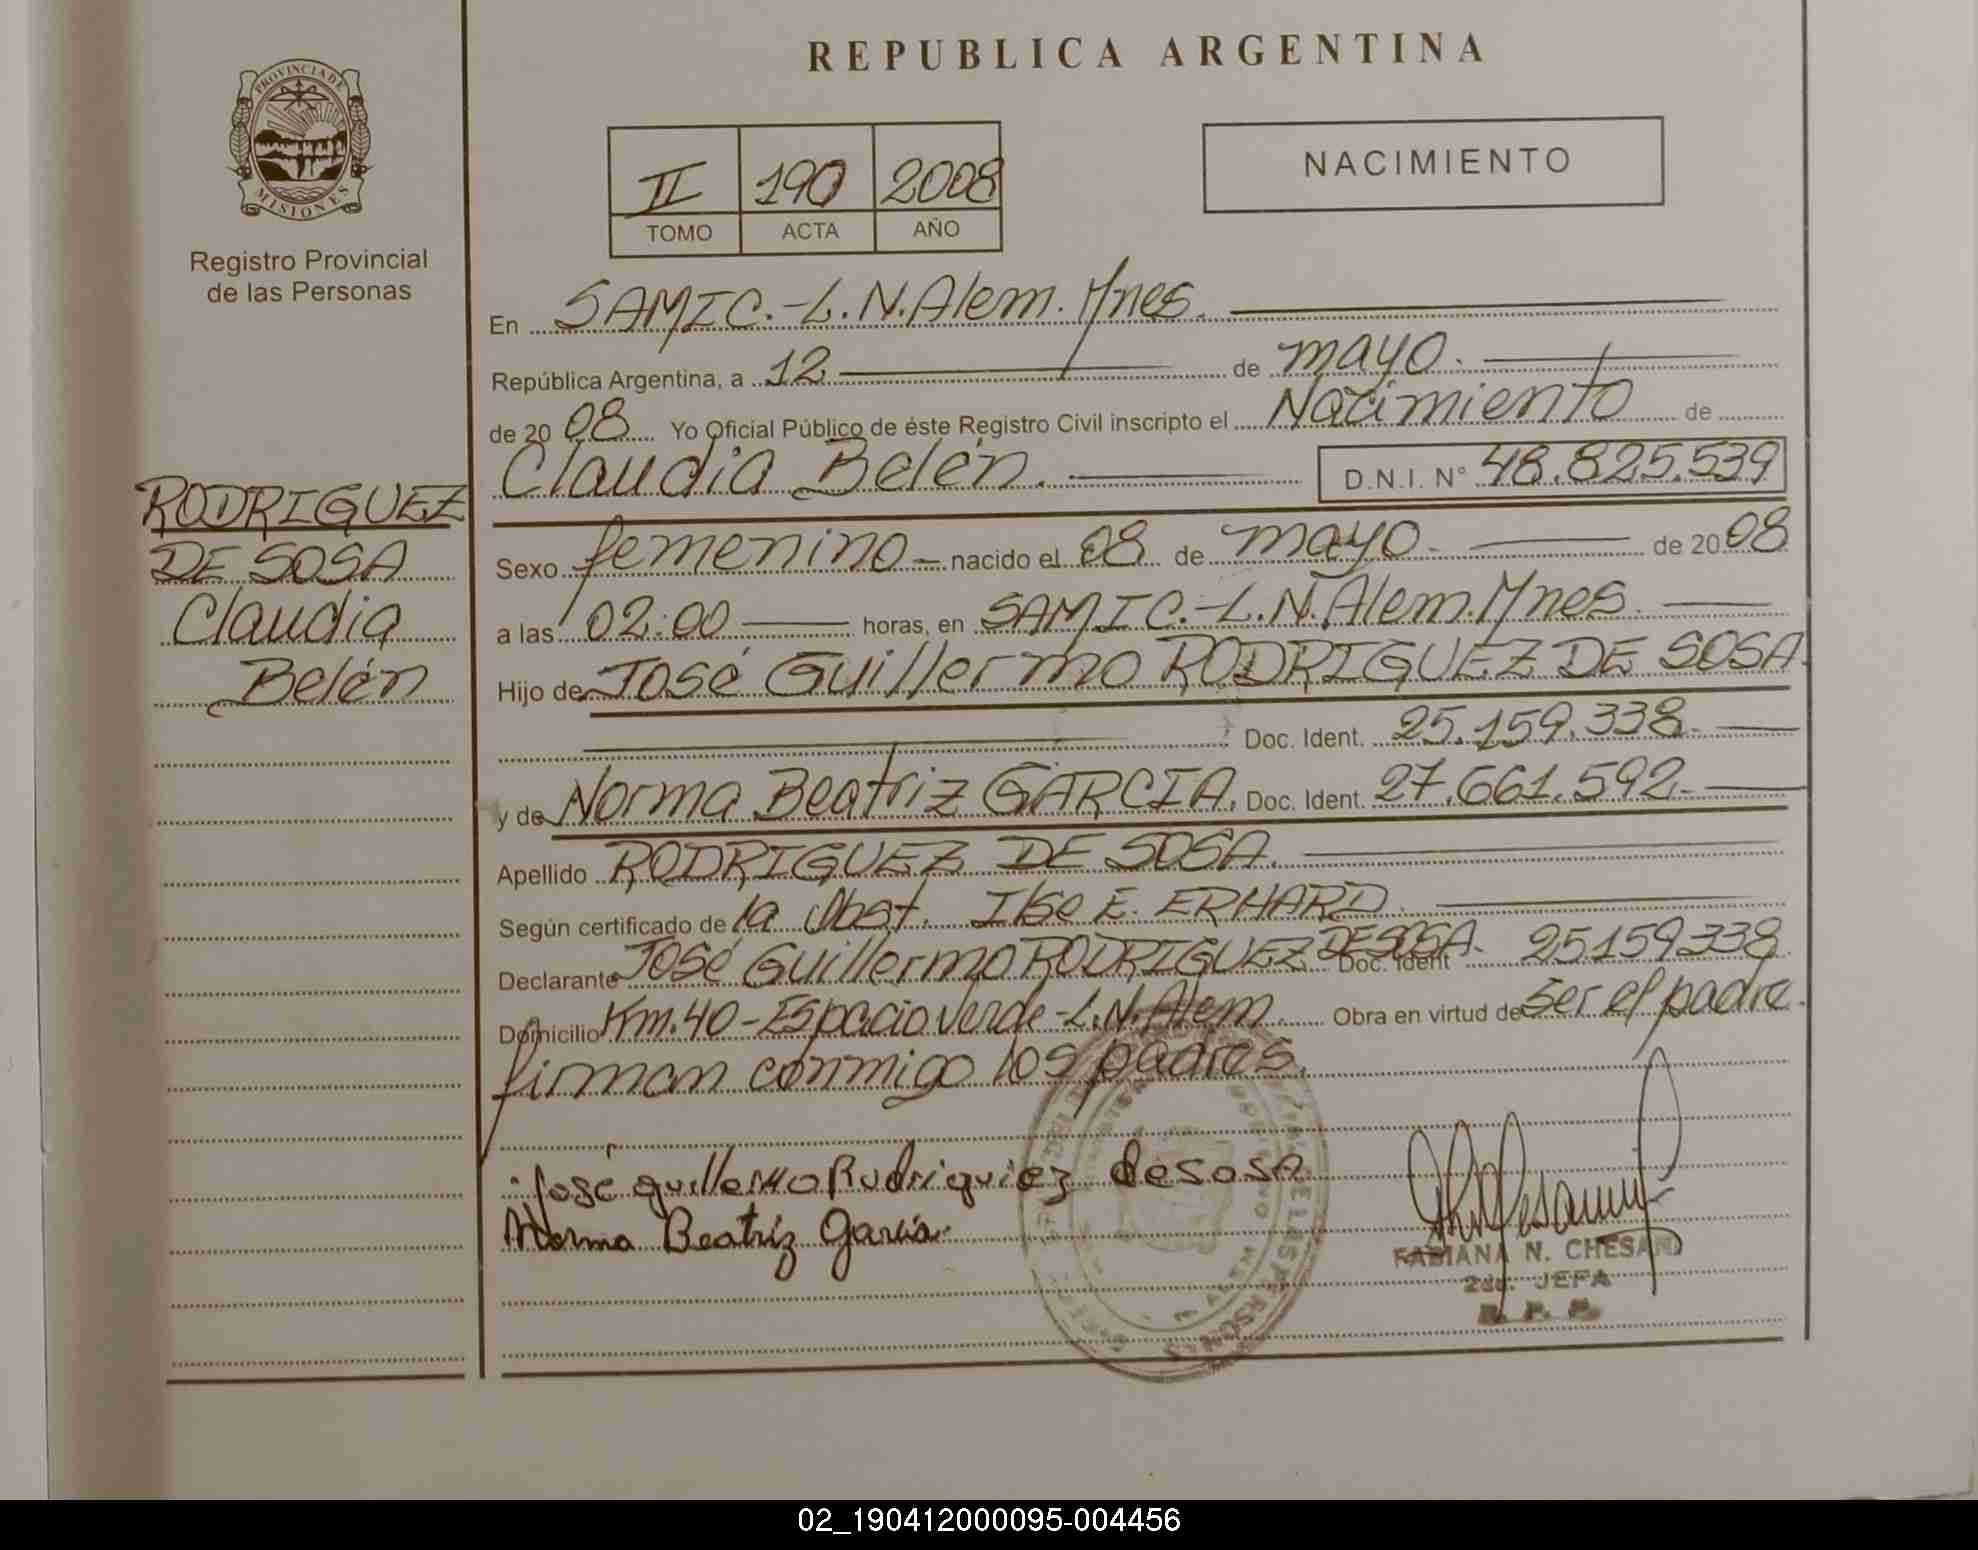 REPUBLICA ARGENTINA
PROVINCIA DE
MISIONES
Registro Provincial
de las Personas
II 190 2008
TOMO ACTA AÑO
NACIMIENTO
En SAMIC.-L.N.Alem.Mnes.
República Argentina, a 12 de mayo.
de 20 08 Yo Oficial Público de éste Registro Civil inscripto el Nacimiento de
Claudia Belén. D.N.I. Nº 48.825.539
RODRIGUEZ
DE SOSA
Claudia
Belén
Sexo femenino nacido el 08 de mayo. de 20 08
a las 02:00 horas, en SAMIC.-L.N.Alem.Mnes.
Hijo de José Guillermo RODRIGUEZ DE SOSA.
Doc. Ident. 25.159.338.
y de Norma Beatriz GARCIA. Doc. Ident. 27.661.592.
Apellido RODRIGUEZ DE SOSA.
Según certificado de la Obst. Ilse E. ERHARD.
Declarante José Guillermo RODRIGUEZ DE SOSA. Doc. Ident 25159338
Domicilio Km.40-Espacio Verde-L.N.Alem. Obra en virtud de Ser el padre.
firman conmigo los padres.
José guillermo Rudriguiez desosa
Norma Beatriz Garcia
FABIANA N. CHESANI
2da. JEFA
R. P. P.
02_190412000095-004456